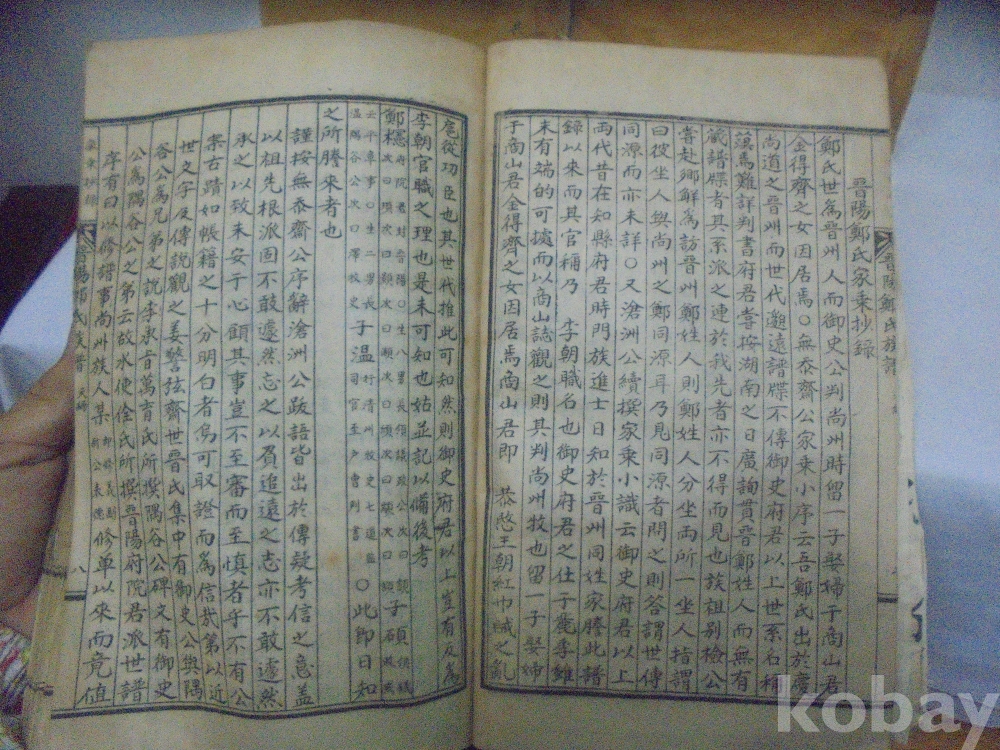 晉陽鄭氏家乘抄錄
鄭氏世爲晉州人而御史公判尚州時留一子娶婦于商山君
金得齊之女因居焉○無忝齋公家乘小序云吾鄭氏出於慶
尚道之晉州而世代邈遠譜牒不傳御史府君以上世系名稱
蕩焉難詳判書府君嘗按湖南之日廣詢貫晉鄭姓人而無有
藏譜牒者其系派之連於我先者亦不得而見也族祖別檢公
嘗赴鄕鮮爲訪晉州鄭姓人則鄭姓人分坐兩所一坐人指謂
曰彼坐人與尚州之鄭同源耳乃見同源者問之則答謂世傳
同源而亦未詳○又滄洲公續撰家乘小識云御史府君以上
兩代昔在知縣府君時門族進士日知於晉州同姓家謄此譜
錄以來而其官稱乃 李朝職名也御史府君之仕于麗季雖
未有端的可據而以商山誌觀之則其判尚州牧也留一子娶婦
于商山君金得齊之女因居焉商山君即 恭愍王朝紅巾賊之亂
扈從功臣也其世代推此可知然則御史府君以上豈有反爲
李朝官職之理也是未可知也姑並記以備後考
鄭櫶 子碩
子溫 ○此即日知
之所謄來者也
謹按無忝齋公序辭滄洲公跋語皆出於傳疑考信之意蓋
以祖先根派固不敢遽然忘之以負追遠之志亦不敢遽然
承之以致未安于心顧其事豈不至審而至愼者乎不有公
案古蹟如帳籍之十分明白者爲可取證而爲信哉第以近
世文字及傳說觀之姜警弦齋世晉氏集中有御史公與隅
谷公爲兄弟之說李承旨萬育氏所撰隅谷公碑文有御史
公爲隅谷公之弟云故水使佺氏所撰晉陽府院君派世譜
序有曰以修譜事尚州族人某 修單以來而竟值
晉陽鄭氏族譜
八
kobay